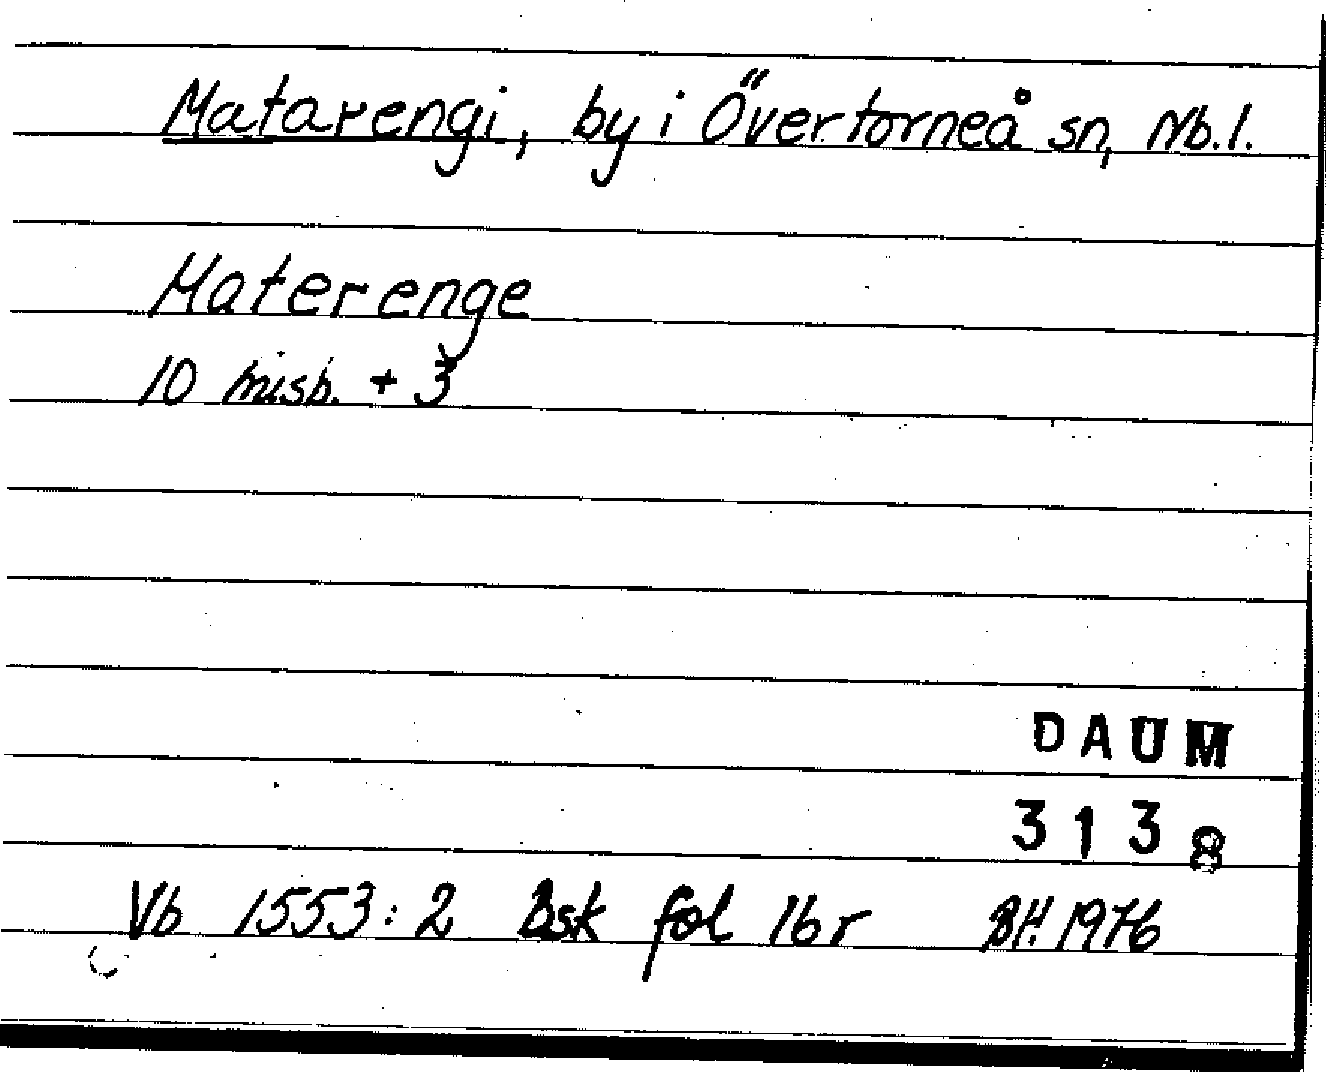 Matarengi, by i Övertorneå sn, Nb.l.
Materenge
10 misb. + 3
DAUM
3138
Vb 1553:2 Bsk fol 16r BH. 1976